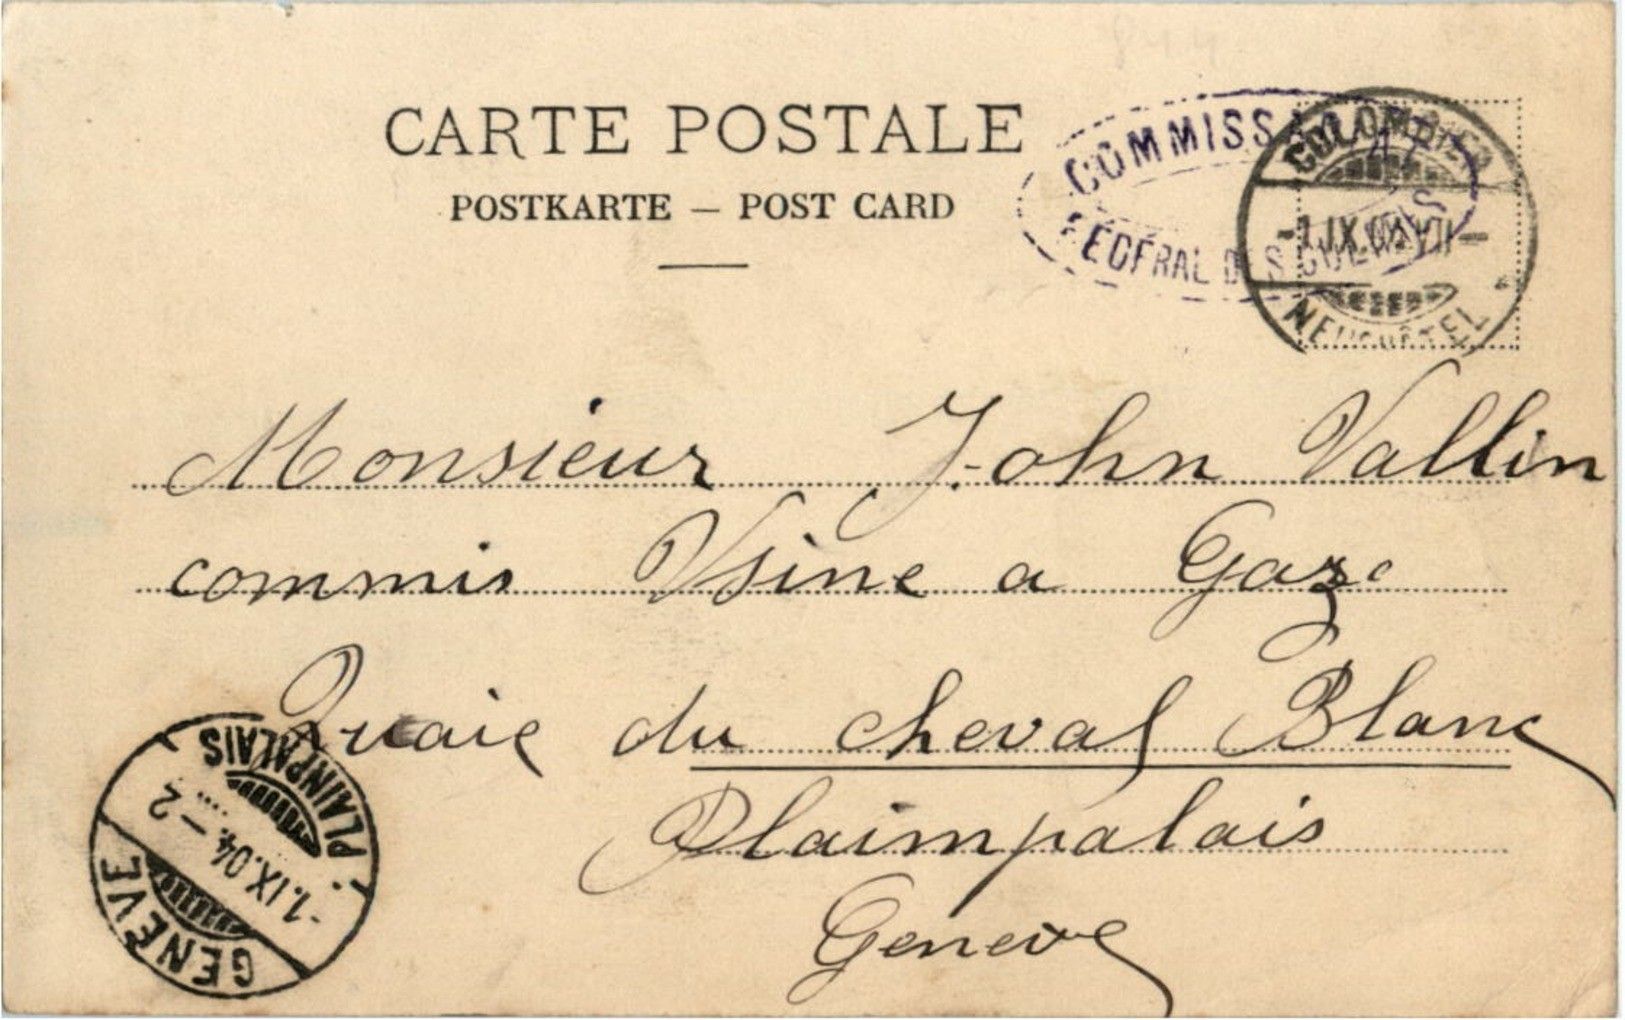 CARTE POSTALE
POSTKARTE — POST CARD
COMMISSARIAT
FÉDÉRAL DES GUERRES
COLOMBIER
-1.IX.04.VII-
NEUCHÂTEL
Monsieur John Vallin
commis Usine a Gaze
Quaie du cheval Blanc
Plaimpalais
Geneve
PLAINPALAIS
-1.IX.04.-2
GENÈVE